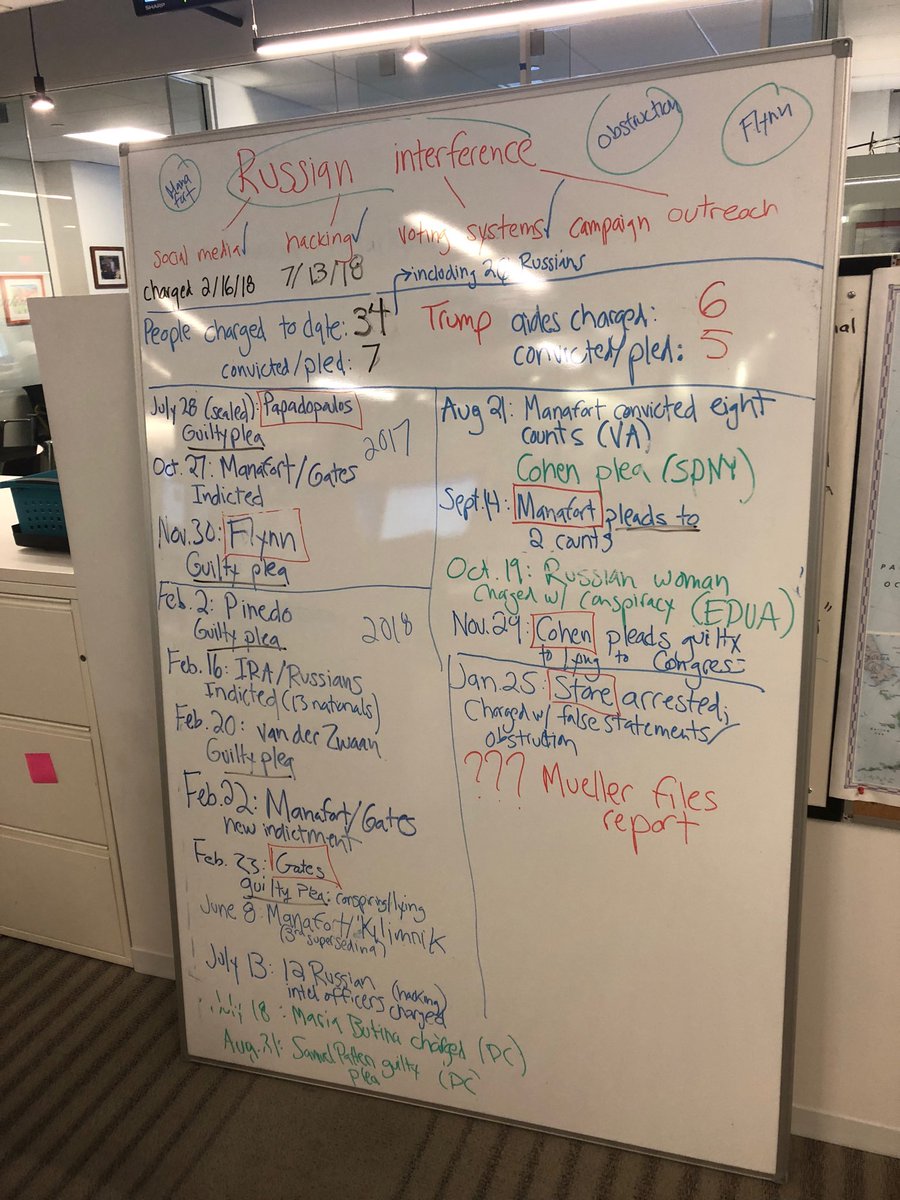 SHARP
Manafort
Russian interference
Obstruction
Flynn
social media
hacking
voting systems
campaign outreach
charged 2/16/18
7/13/18
including 26 Russians
People charged to date: 34
convicted/pled: 7
Trump aides charged: 6
convicted/pled: 5
July 28 (sealed): Papadopalos
Guilty plea
2017
Oct. 27: Manafort/Gates
Indicted
Nov. 30: Flynn
Guilty plea
Feb. 2: Pinedo
Guilty plea
2018
Feb. 16: IRA/Russians
Indicted (13 nationals)
Feb. 20: van der Zwaan
Guilty plea
Feb. 22: Manafort/Gates
new indictment
Feb. 23: Gates
guilty plea: conspiring/lying
June 8: Manafort/Kilimnik
(3rd superseding)
July 13: 12 Russian (hacking)
intel officers charged
July 18: Maria Butina charged (DC)
Aug. 31: Samuel Patten guilty
plea (DC
Aug 21: Manafort convicted eight
counts (VA)
Cohen plea (SDNY)
Sept. 14: Manafort pleads to
2 counts
Oct. 19: Russian woman
chaged w/ conspiracy (EDVA)
Nov. 29: Cohen pleads guilty
to lying to Congress
Jan. 25: Stone arrested;
Charged w/ false statements/
obstruction
??? Mueller files
report